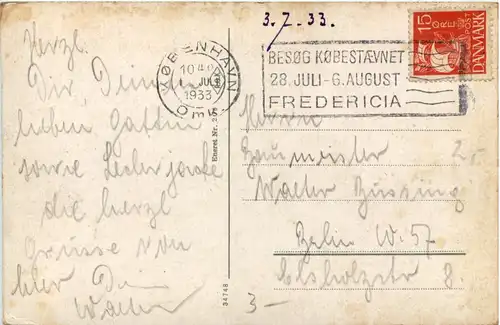 3.7.33.
KØBENHAVN
10 40
JUL
1933
OMK
BESØG KØBESTÆVNET
28. JULI - 6. AUGUST
FREDERICIA
15
ØRE
POST
DANMARK
Herzl.
Dir, Deiner
lieben Gattin
sowie
die herzl
Grüsse von
hier Dein
Walter
Eneret Nr. 25
34748
Herrn
Baumeister
Walter Büssing
Berlin W. 57
Elsholzstr 8
3-